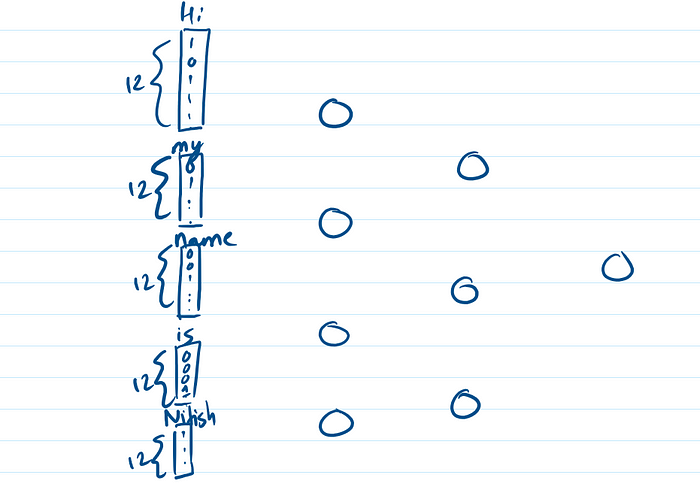 Hi
12
1
0
1
1
1
my
12
0
1
name
12
0
0
1
is
12
0
0
0
1
Nitish
12